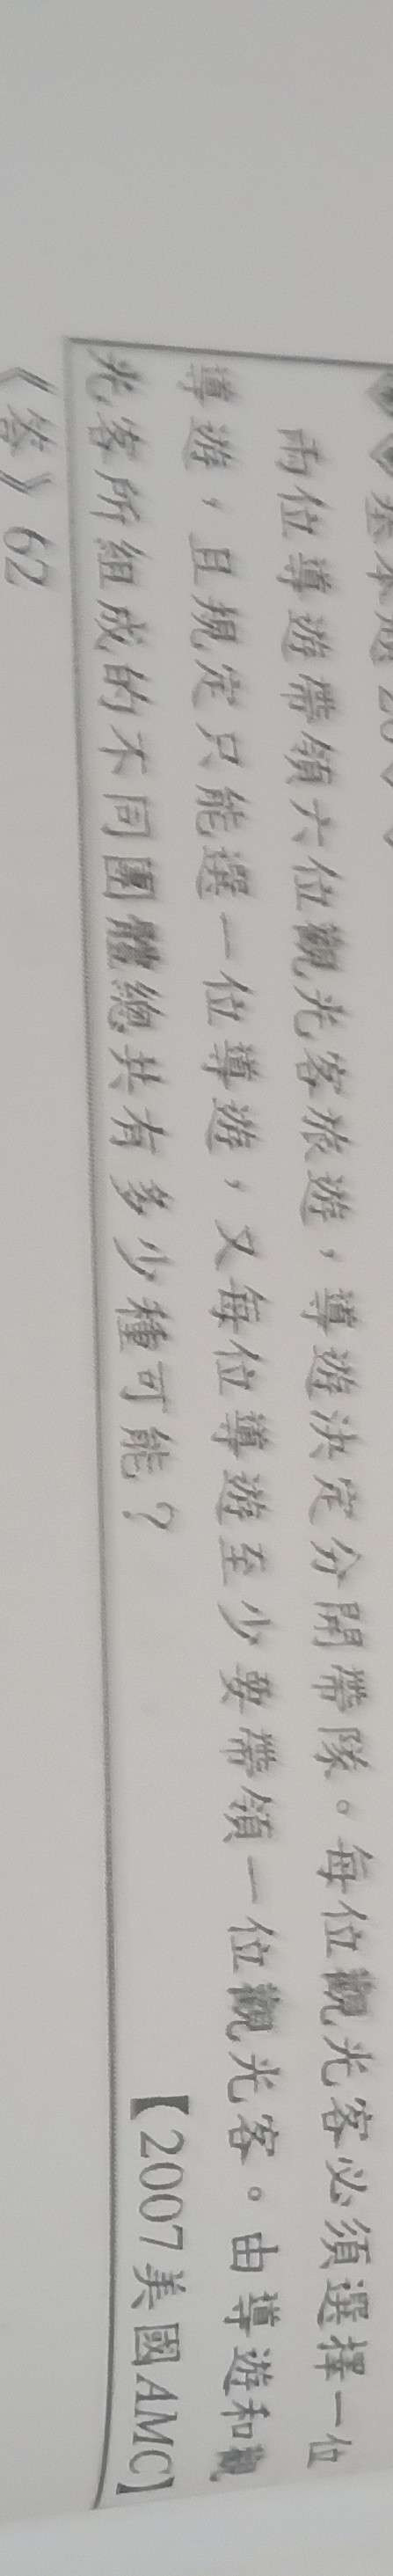 基本題 20
兩位導遊帶領六位觀光客旅遊，導遊決定分開帶隊。每位觀光客必須選擇一位
導遊，且規定只能選一位導遊，又每位導遊至少要帶領一位觀光客。由導遊和觀
光客所組成的不同團體總共有多少種可能？
【2007美國AMC】
《答》62